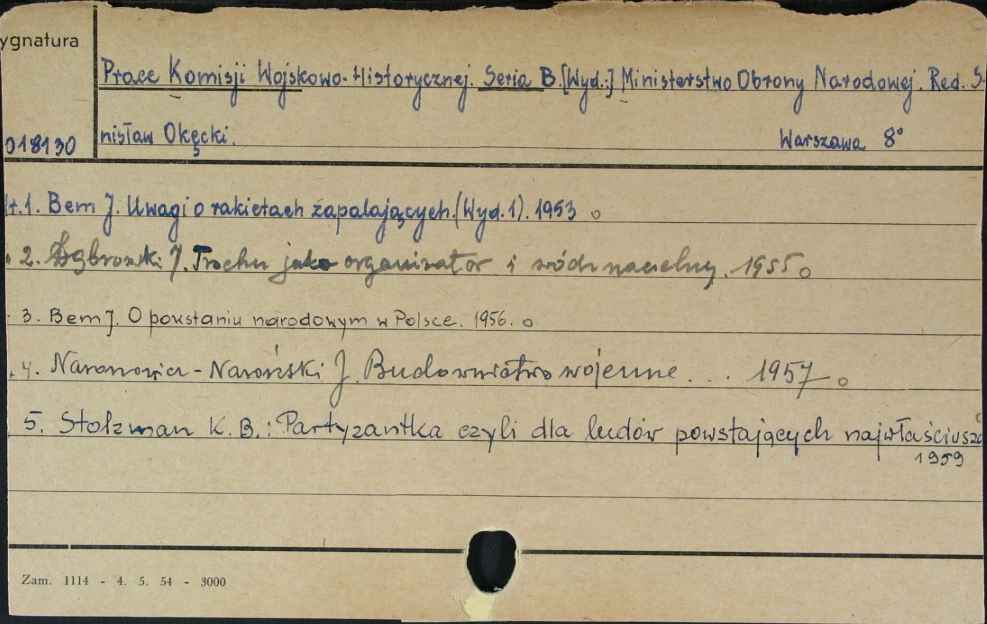 ygnatura
Prace Komisji Wojskowo-Historycznej. Seria B. [Wyd.:] Ministerstwo Obrony Narodowej. Red. S-
018130 nisław Okęcki. Warszawa 8°
t.1. Bem J. Uwagi o rakietach zapalających. (Wyd. 1). 1953
2. Dąbrowski J. Trochu jako organizator i wódz naczelny. 1955
3. Bem J. O powstaniu narodowym w Polsce. 1956.
4. Naronowicz-Naroński J. Budownictwo wojenne... 1957
5. Stolzman K. B.: Partyzantka czyli dla ludów powstających najwłaściwsz
1959
Zam. 1114 - 4. 5. 54 - 3000